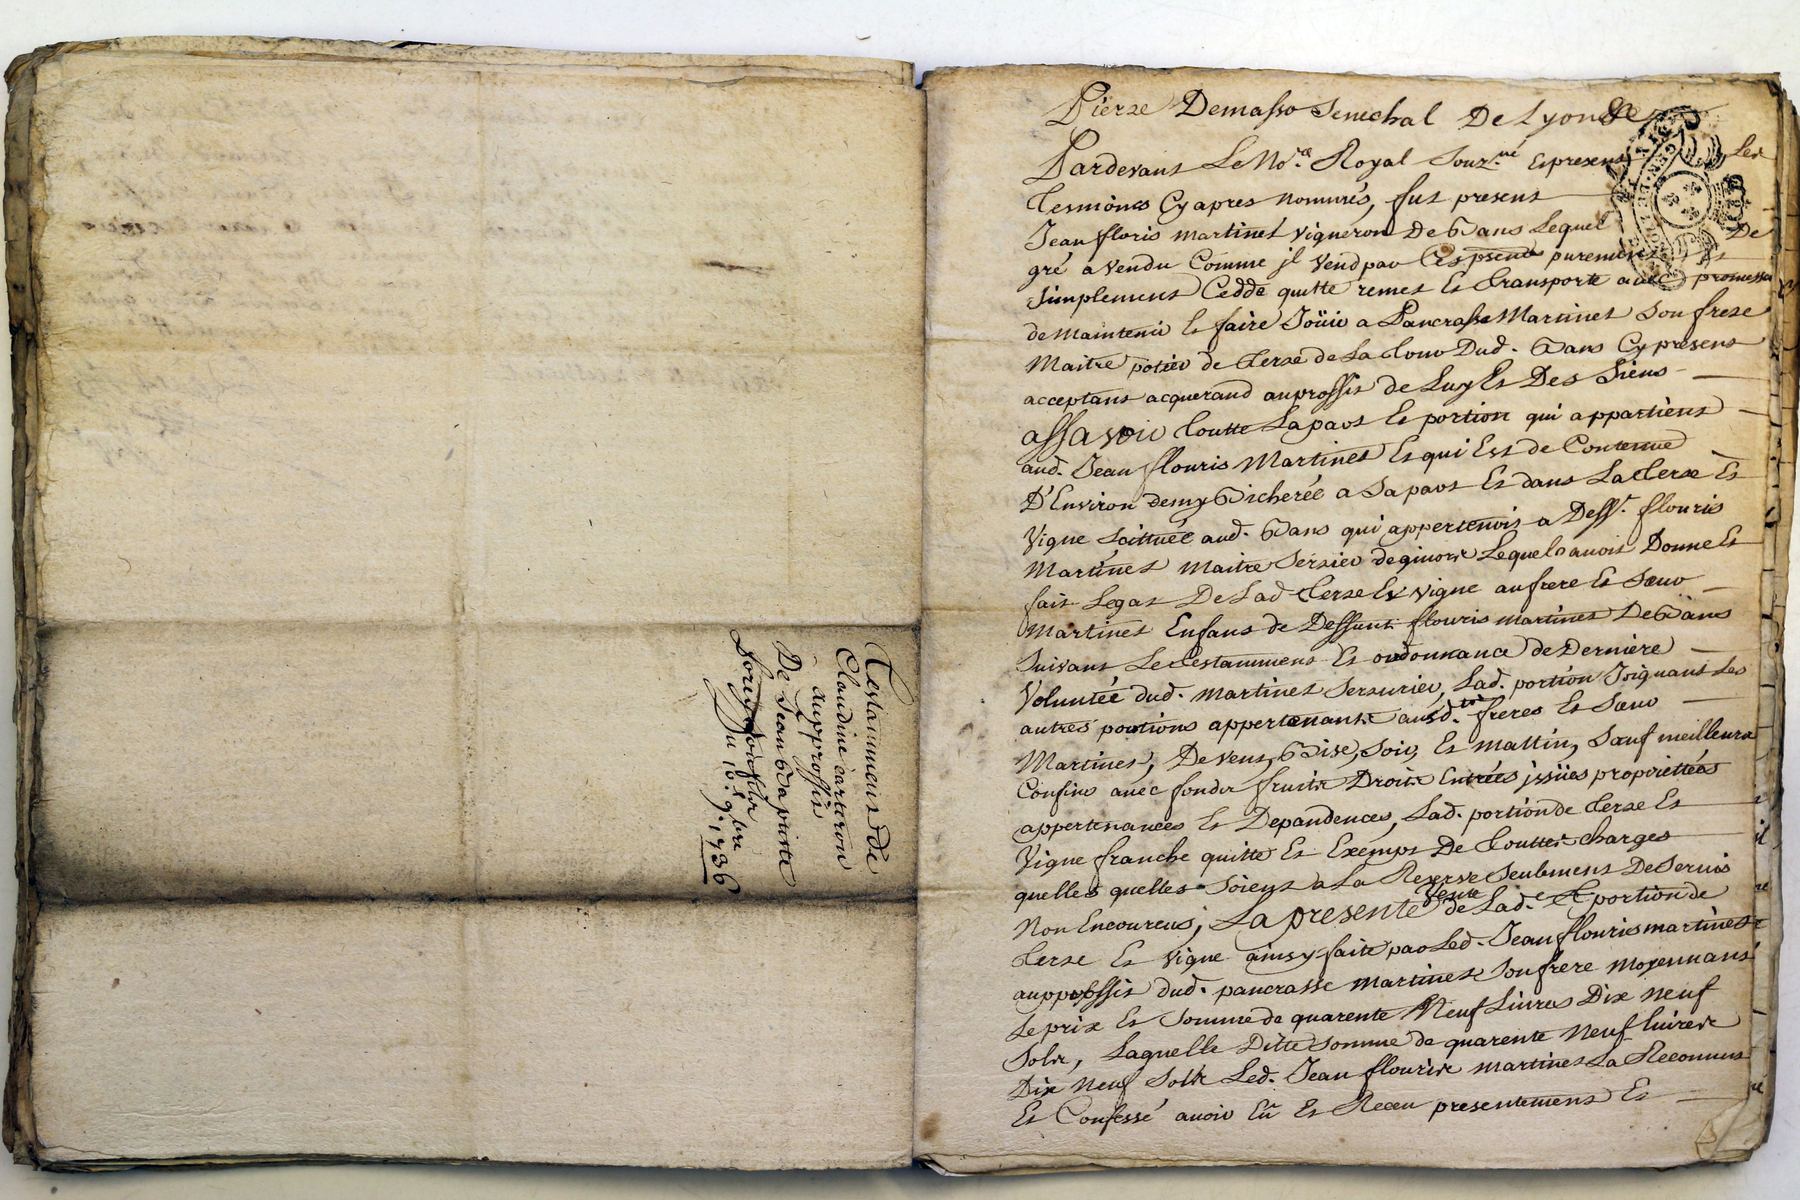 Testamment de
Claudine carteron
aupproffit
De Jean Lapinte
Du 10.e 9.bre 1736
Pierre Demasso Senechal De Lyon &c
Pardevant Le No.re Royal Souz.né Et present Les
Tesmoins Cy apres nommés, fut present
Jean floris martinet vigneron De Vans Lequel De
gré a vendu Comme jl vend par Ces psente purement Et
simplement Cedde quitte remet Et Transporte avec promesse
de maintenir Et faire Joüir a Pancrasse Martinet Son frere
Maitre potier de Terre de La Tour Dud. Vans Cy présent
acceptant acquerand auproffit de Luy Et Des Siens
assavoir Toutte La part Et portion qui appartient
aud. Jean flouris Martinet Et qui Est de Contenue
D'Environ demy Bicherée a Sa part Et dans La Terre Et
Vigne scittuée aud. Vans qui appertenoit a Deff.t flouris
Martinet Maitre Serrier de givors Lequel avoit Donne Et
fait Legat De Lad Terre Et vigne au frere Et Sœur
Martinet Enfans de Deffunt flouris martinet De Vans
Suivant Le Testamment Et ordonnance de Derniere
Voluntée dud. Martinet Serrurier, Lad. portion Joignant Les
autres portions appertenante ausd.ts freres Et Sœur
Martinet, De vent, Bise, Soir, Et mattin, Sauf meilleurs
Confins avec fonds fruits Droits Entrées jssües proprietées
appertenances Et Dependences, Lad. portion de Terre Et
Vigne franche quitte Et Exempt De Touttes Charges
quelles quelles Soient a La Reserve Seulement De Servis
Non Encourus; La presente Vente de Lad.e portion de
Terre Et Vigne ainsy faite par Led. Jean flouris martinet
aupproffit dud. pancrasse Martinet Son frere Moyennant
Le prix Et Somme de quarente Neuf Livres Dix Neuf
Sols, Laquelle Ditte Somme de quarente Neuf Livres
Dix Neuf Sols Led. Jean flouris Martinet La Reconnus
Et Confessé avoir Eü Et Receu presentement Et